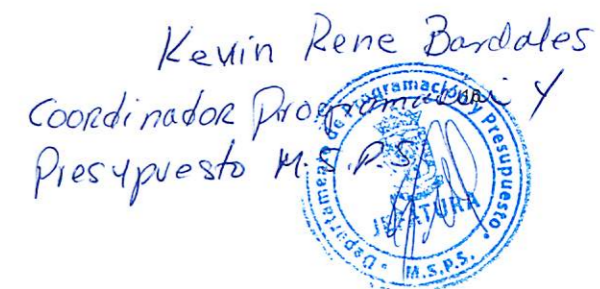 Kevin Rene Bardales
Coordinador Programacion Y
Presupuesto M.S.P.S
Departamento de Programación y Presupuesto
JEFATURA
M.S.P.S.